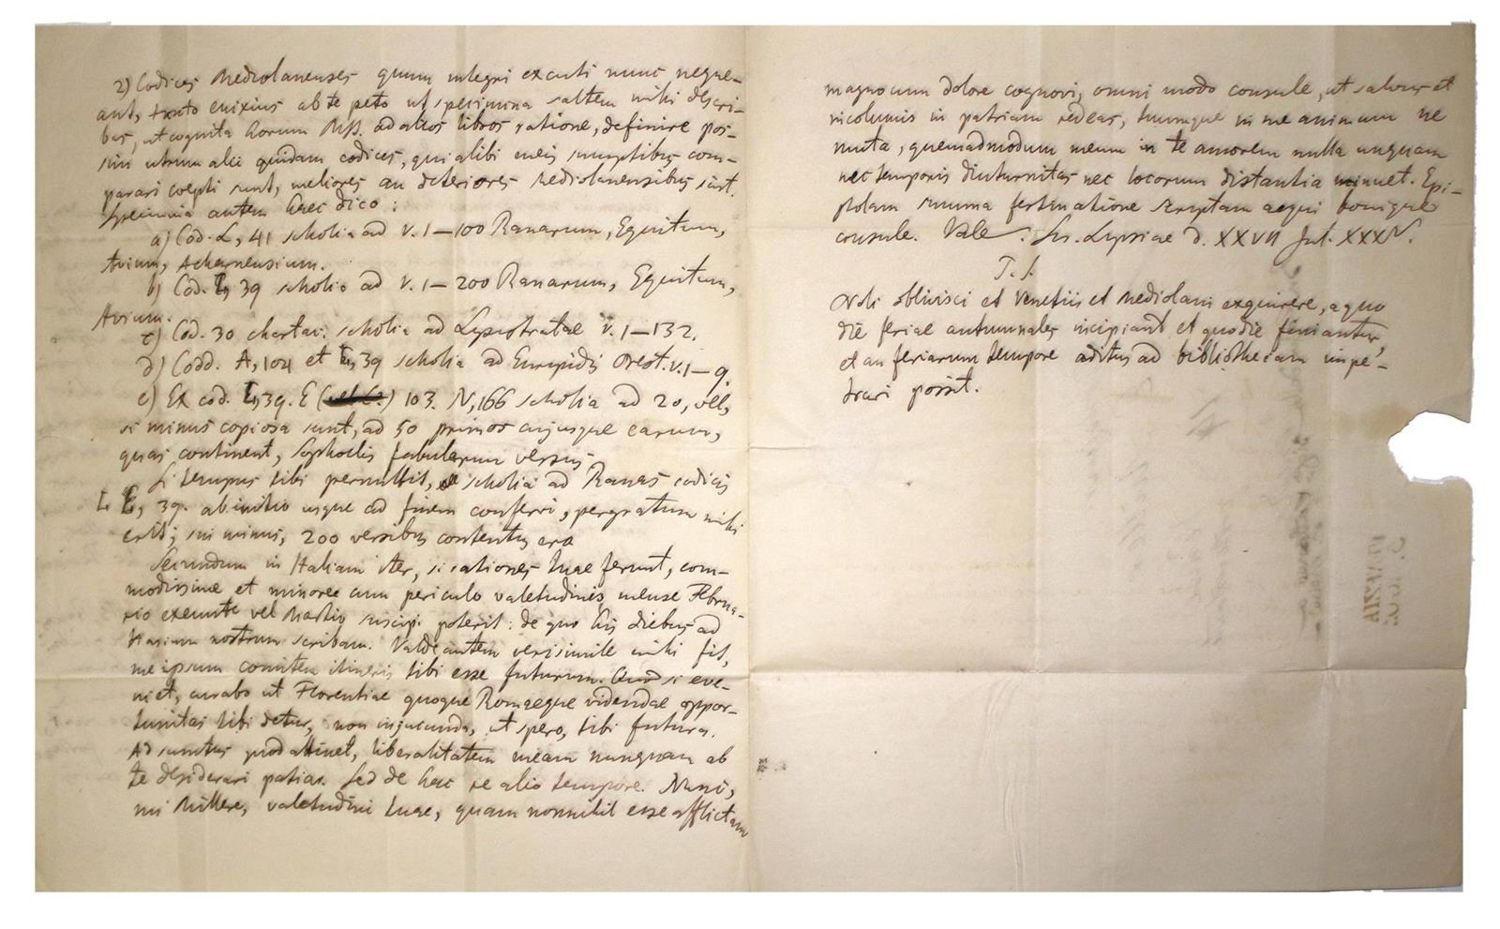 2) Codices Mediolanenses quum integri excuti nunc neque-
ant, tanto enixius abs te peto ut specimina saltem mihi descri-
bas, ut cognita horum Mss. ad alios libros ratione, definire pos-
sim utrum alii quidam codices, qui alibi meis sumptibus com-
parari coepti sunt, meliores an deteriores Mediolanensibus sint.
Specimina autem haec dico:
a) Cod. L, 41 scholia ad v. 1—100 Ranarum, Equitum,
Avium, Acharnensium.
b) Cod. L, 39 scholia ad v. 1—200 Ranarum, Equitum,
Avium.
c) Cod. 30 chartac. scholia ad Lysistratae v. 1—132.
d) Codd. A, 104 et L, 39 scholia ad Euripidis Orest. v. 1—9.
e) Ex cod. L, 39. E 103. N, 166 scholia ad 20, vel,
si minus copiosa sunt, ad 50 primos cujusque earum,
quas continent, Sophoclis fabularum versus.
Si tempus tibi permittit, scholia ad Ranas codicis
L, 39. ab initio usque ad finem conferri, pergratum mihi
erit; sin minus, 200 versibus contentus ero
Secundum in Italiam iter, si rationes tuae ferunt, com-
modissime et minore cum periculo valetudinis mense Februa-
rio exeunte vel Martio suscipi poterit: de quo his diebus ad
nostrum scribam. Valde autem verisimile mihi fit,
me ipsum comitem itineris tibi esse futurum. Quod si eve-
niet, curabo ut Florentiae quoque Romaeque videndae oppor-
tunitas tibi detur, non injucunda, ut spero, tibi futura.
Ad sumtus quod attinet, liberalitatem meam nunquam ab
te desiderari patiar. Sed de hac re alio tempore. Nunc,
mi Millere, valetudini tuae, quam nonnihil esse afflictam
magno cum dolore cognovi, omni modo consule, ut salvus et
incolumis in patriam redeas, tuumque in me animum ne
muta, quemadmodum meum in te amorem nulla unquam
nec temporis diuturnitas nec locorum distantia minuet. Epi-
stolam summa festinatione scriptam aequi bonique
consule. Vale. Lipsiae d. XXVII Jul. XXXIV.
P. S.
Noli oblivisci et Venetiis et Mediolani exquirere, a quo
die feriae autumnales incipiant et quo die finiantur,
et an feriarum tempore aditus ad bibliothecam impe-
trari possit.